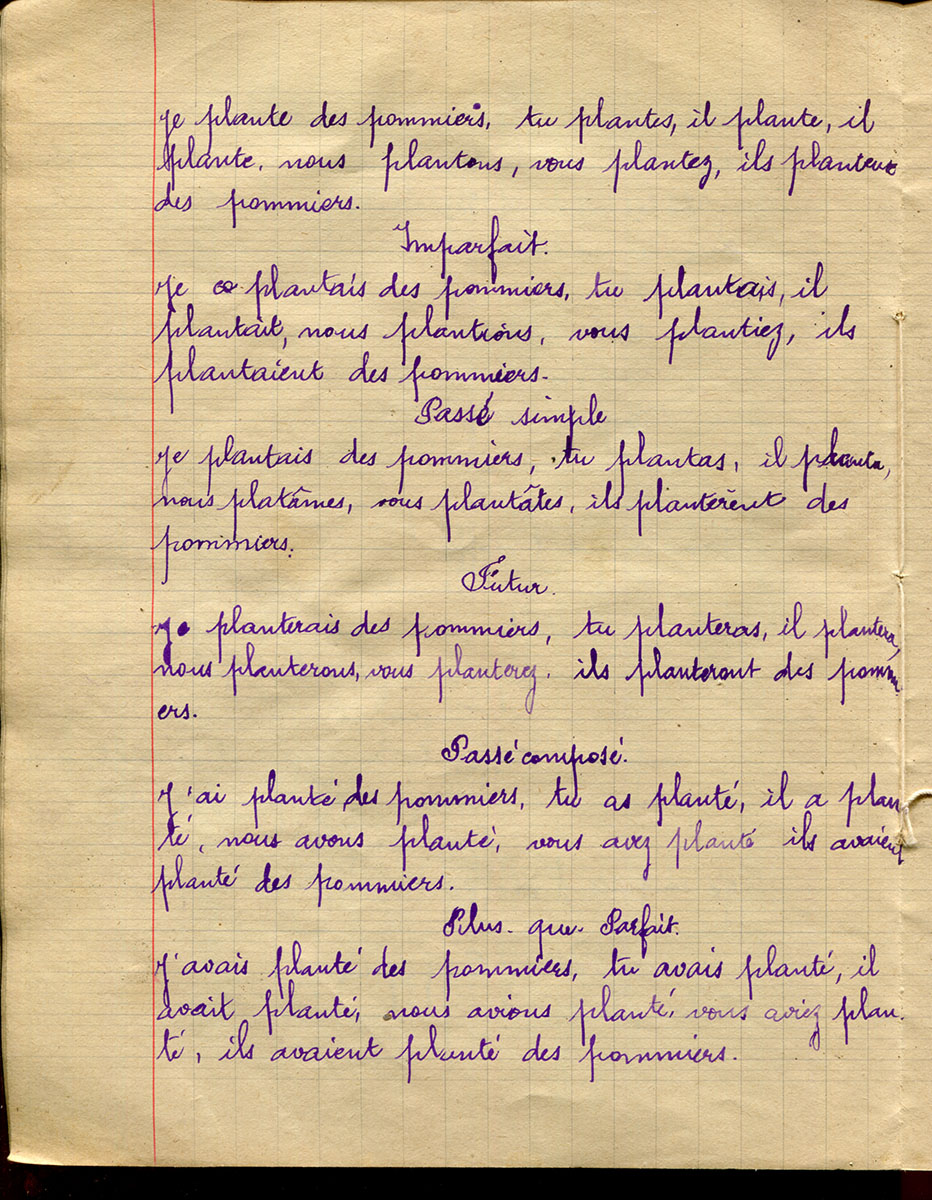 Je plante des pommiers, tu plantes, il plante, il
plante, nous plantons, vous plantez, ils plantent
des pommiers.
Imparfait.
Je plantais des pommiers, tu plantais, il
plantait, nous plantions, vous plantiez, ils
plantaient des pommiers.
Passé simple
Je plantais des pommiers, tu plantas, il planta,
nous platâmes, vous plantâtes, ils plantèrent des
pommiers.
Futur.
Je planterais des pommiers, tu planteras, il plantera,
nous planterons, vous planterez. ils planteront des pommi
ers.
Passé composé.
J'ai planté des pommiers, tu as planté, il a plan
té, nous avons planté, vous avez planté ils avaient
planté des pommiers.
Plus-que-Parfait.
J'avais planté des pommiers, tu avais planté, il
avait planté, nous avions planté, vous aviez plan-
té, ils avaient planté des pommiers.